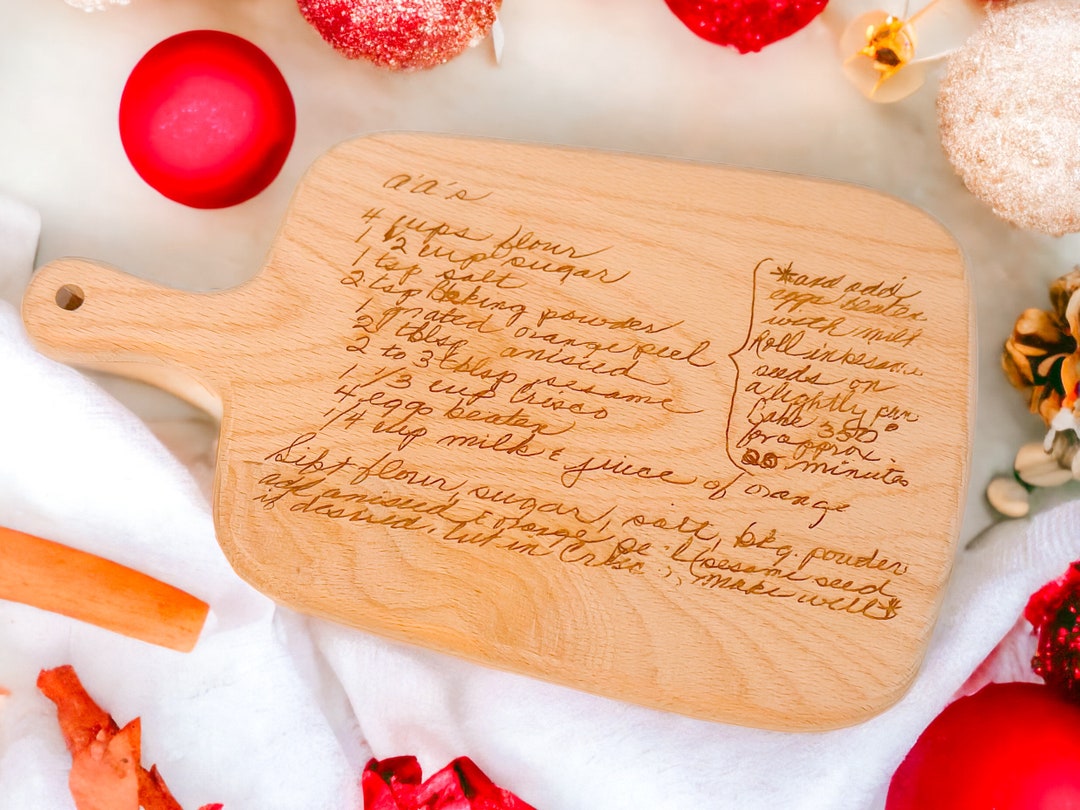 a'a's
4 cups flour
1 1/2 cup sugar
1 tsp salt
2 tsp Baking powder
1 grated orange peel
2 tblsp anisied
2 to 3 tblsp sesame
1 1/3 cup Crisco
4 eggs beaten
1/4 cup milk & juice of orange
Sift flour, sugar, salt, bkg. powder
add anisied & orange pe (sesame seed
if desired. Cut in Crisc ), make well*
*and add
eggs beaten
with milk
Roll in sesame
seeds on
a lightly
Bake 350°
for approx.
25 minutes